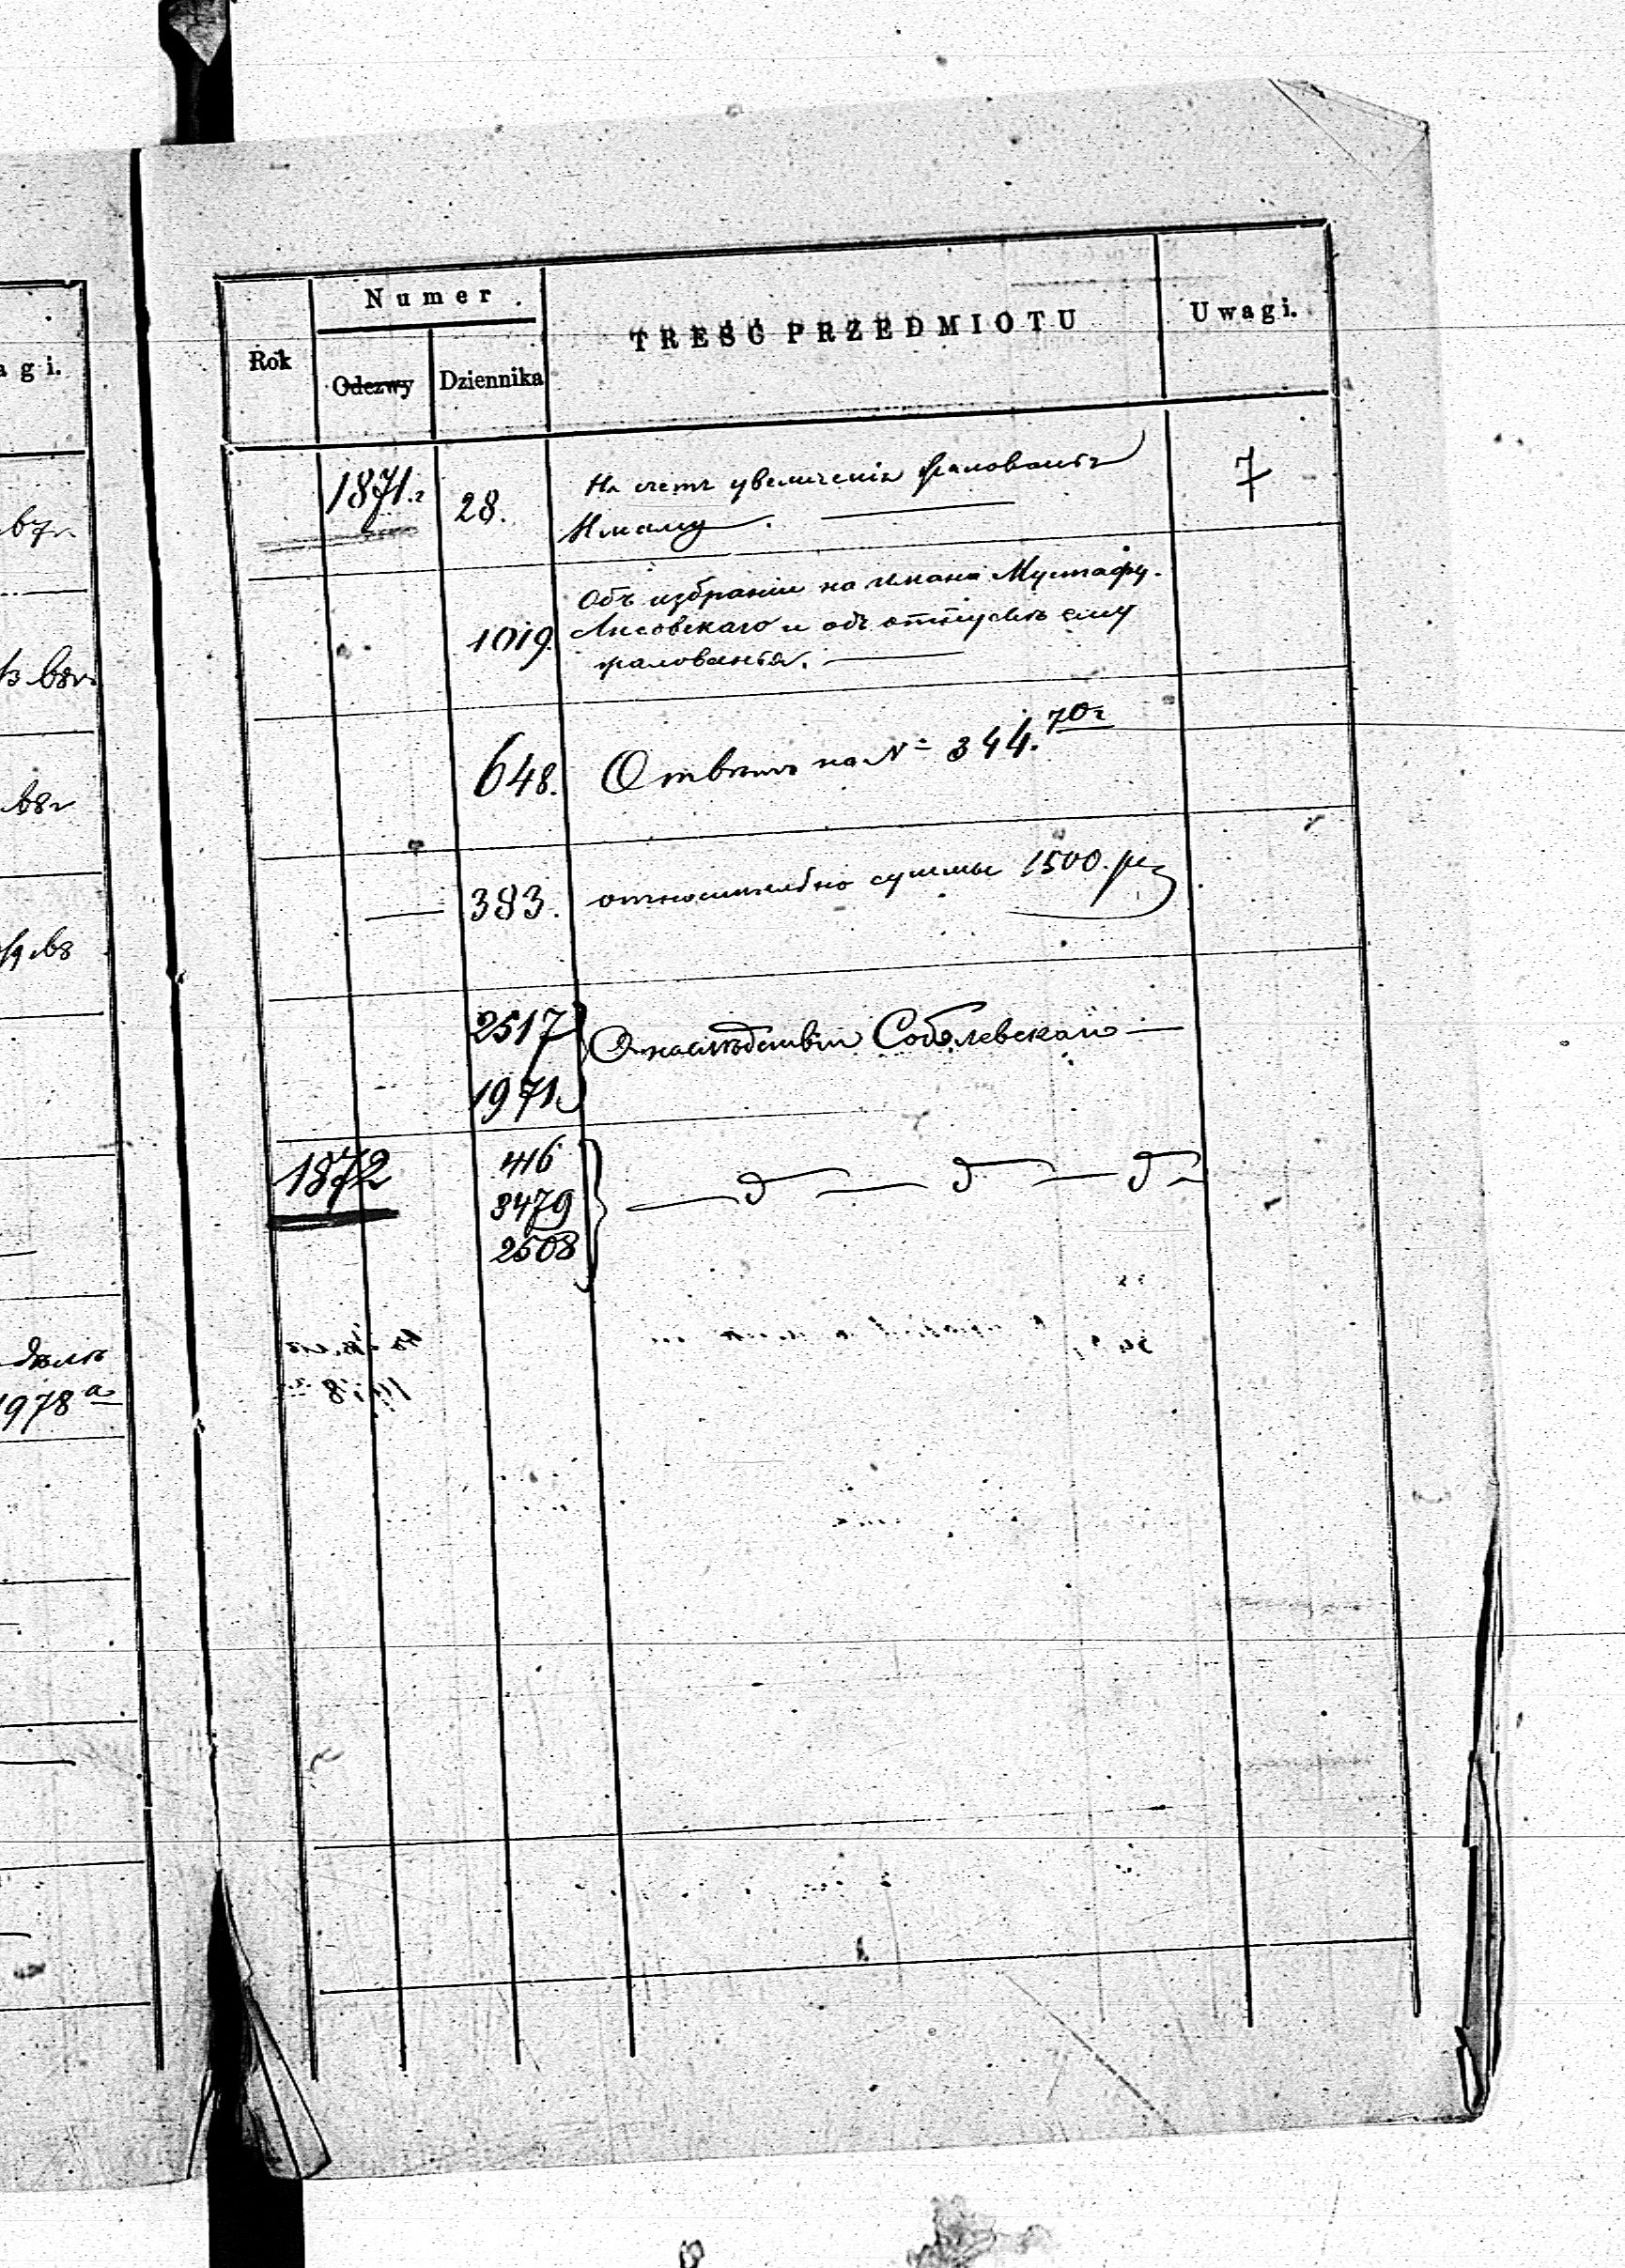 a g i.
Rok
Numer
Odezwy
Dziennika
TREŚĆ PRZEDMIOTU
Uwagi.
1871.г
28.
На счетъ увеличенія жалованья
Имаму.
7
1019.
Объ избраніи на имана Мустафу.
Лисовскаго и объ отпускѣ ему
жалованья.
648.
Отвѣтъ на № 344. 70г
383.
относительно суммы 1500. р
2517
О наслѣдствіи Соболевскаго
1971.
1872
416
3479
2508
д д д
1978 а